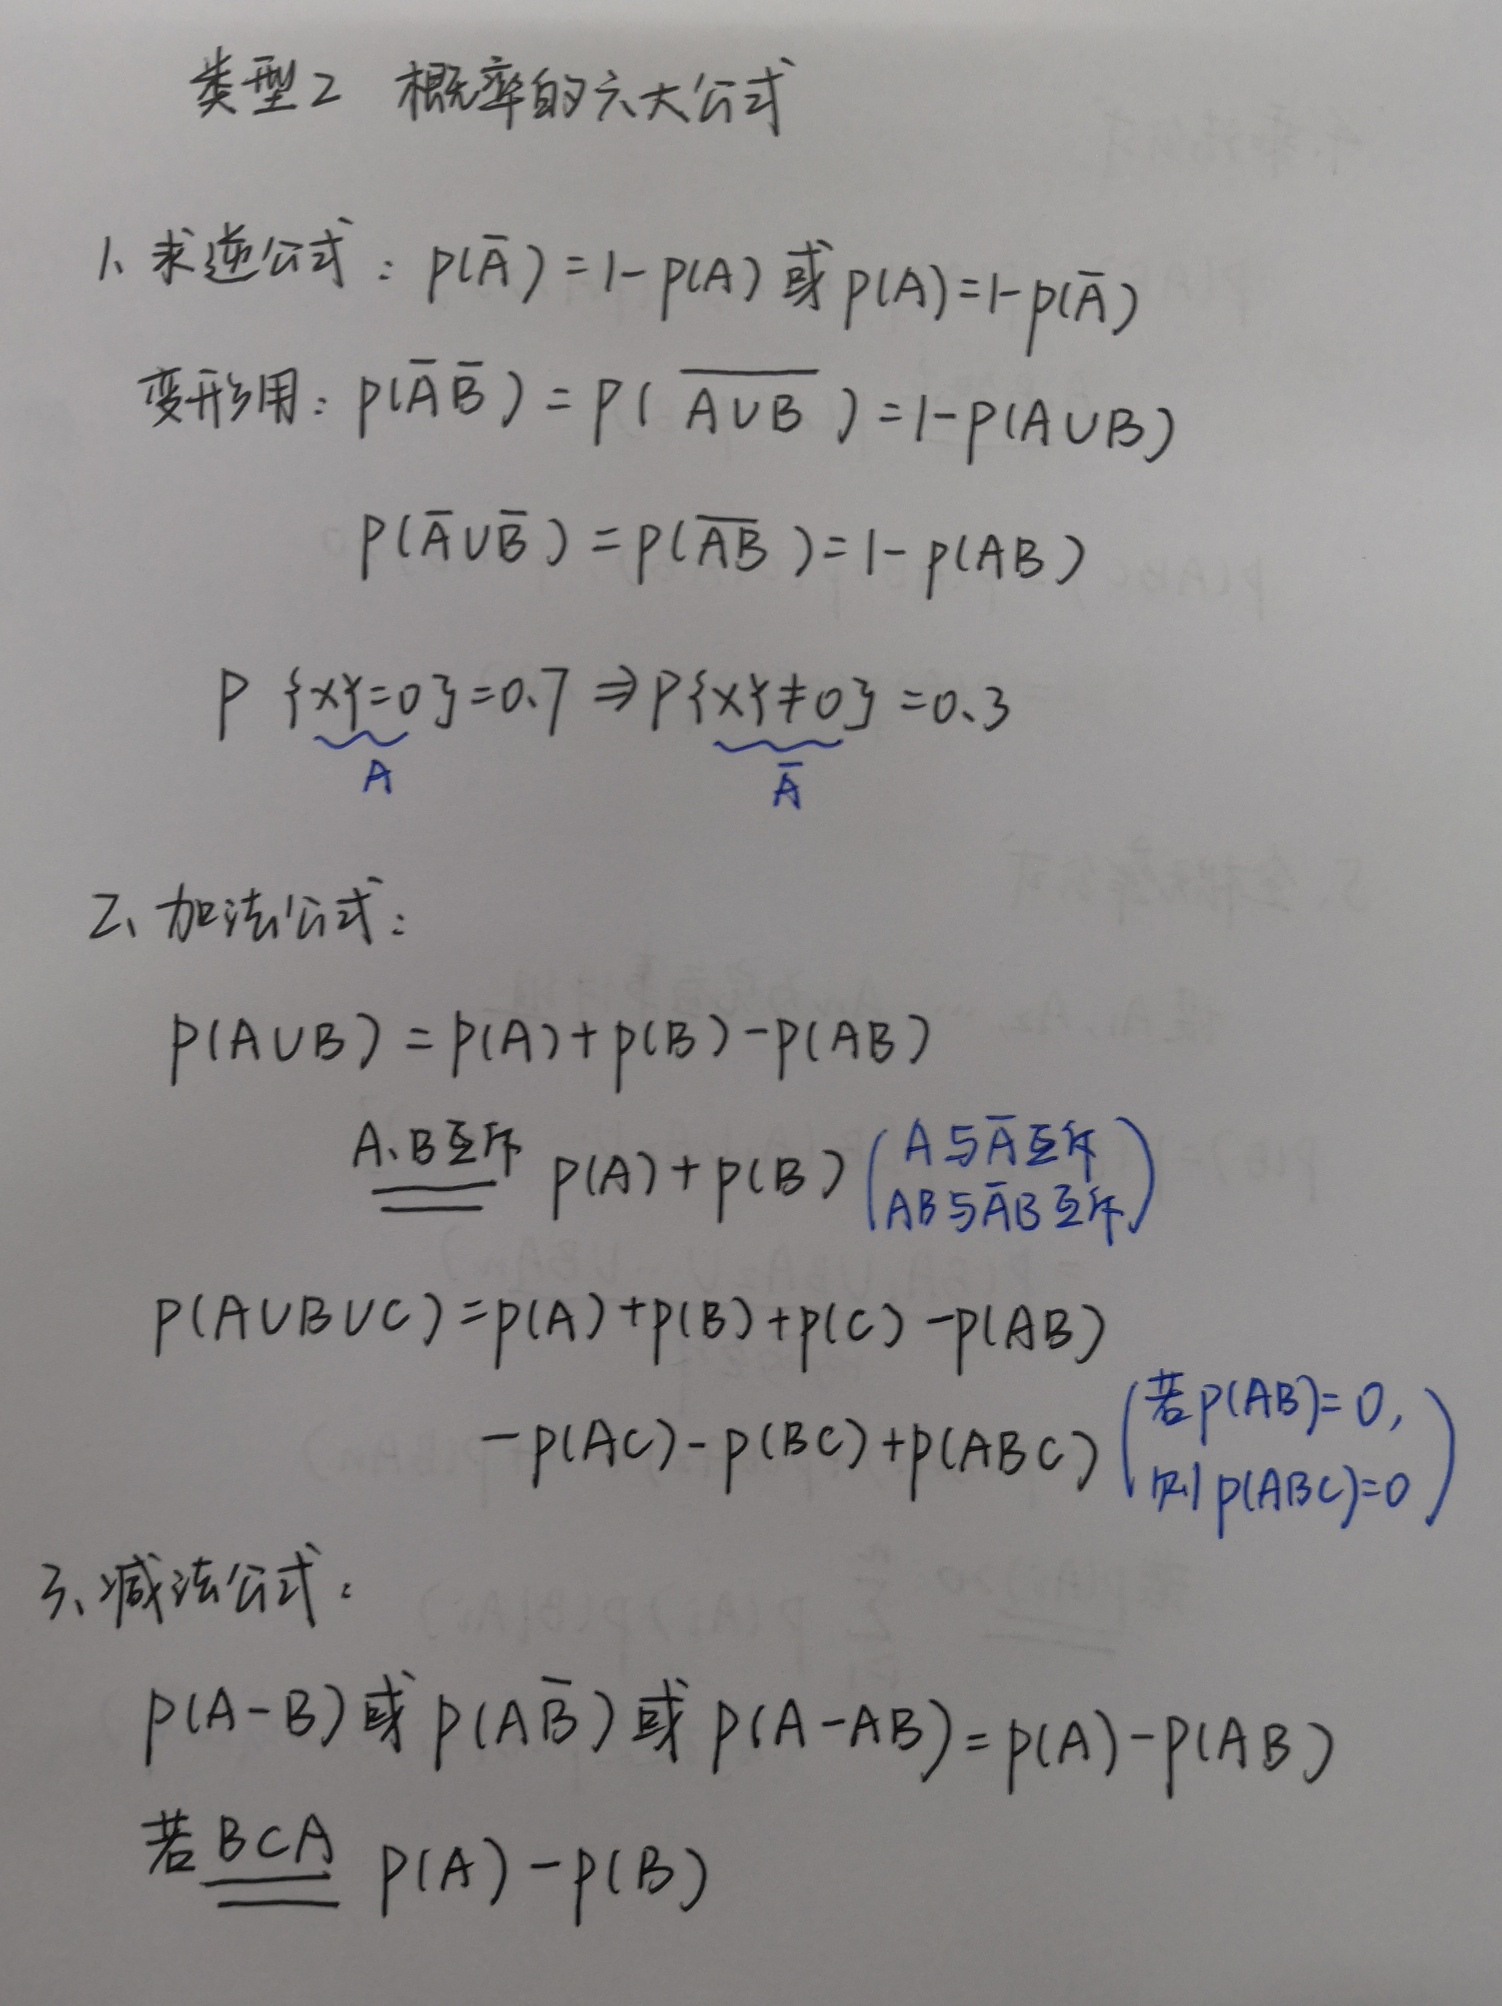 类型2 概率的六大公式
1、求逆公式：P(Ā)=1-P(A)或P(A)=1-P(Ā)
变形用：P(ĀB̄)=P(\overline{A∪B})=1-P(A∪B)
P(Ā∪B̄)=P(\overline{AB})=1-P(AB)
P{XY=0}=0.7⇒P{XY≠0}=0.3
A Ā
2、加法公式：
P(A∪B)=P(A)+P(B)-P(AB)
A、B互斥 P(A)+P(B)(A与Ā互斥
AB与ĀB互斥)
P(A∪B∪C)=P(A)+P(B)+P(C)-P(AB)
-P(AC)-P(BC)+P(ABC)(若P(AB)=0,
则P(ABC)=0)
3、减法公式：
P(A-B)或P(AB̄)或P(A-AB)=P(A)-P(AB)
若B⊂A P(A)-P(B)